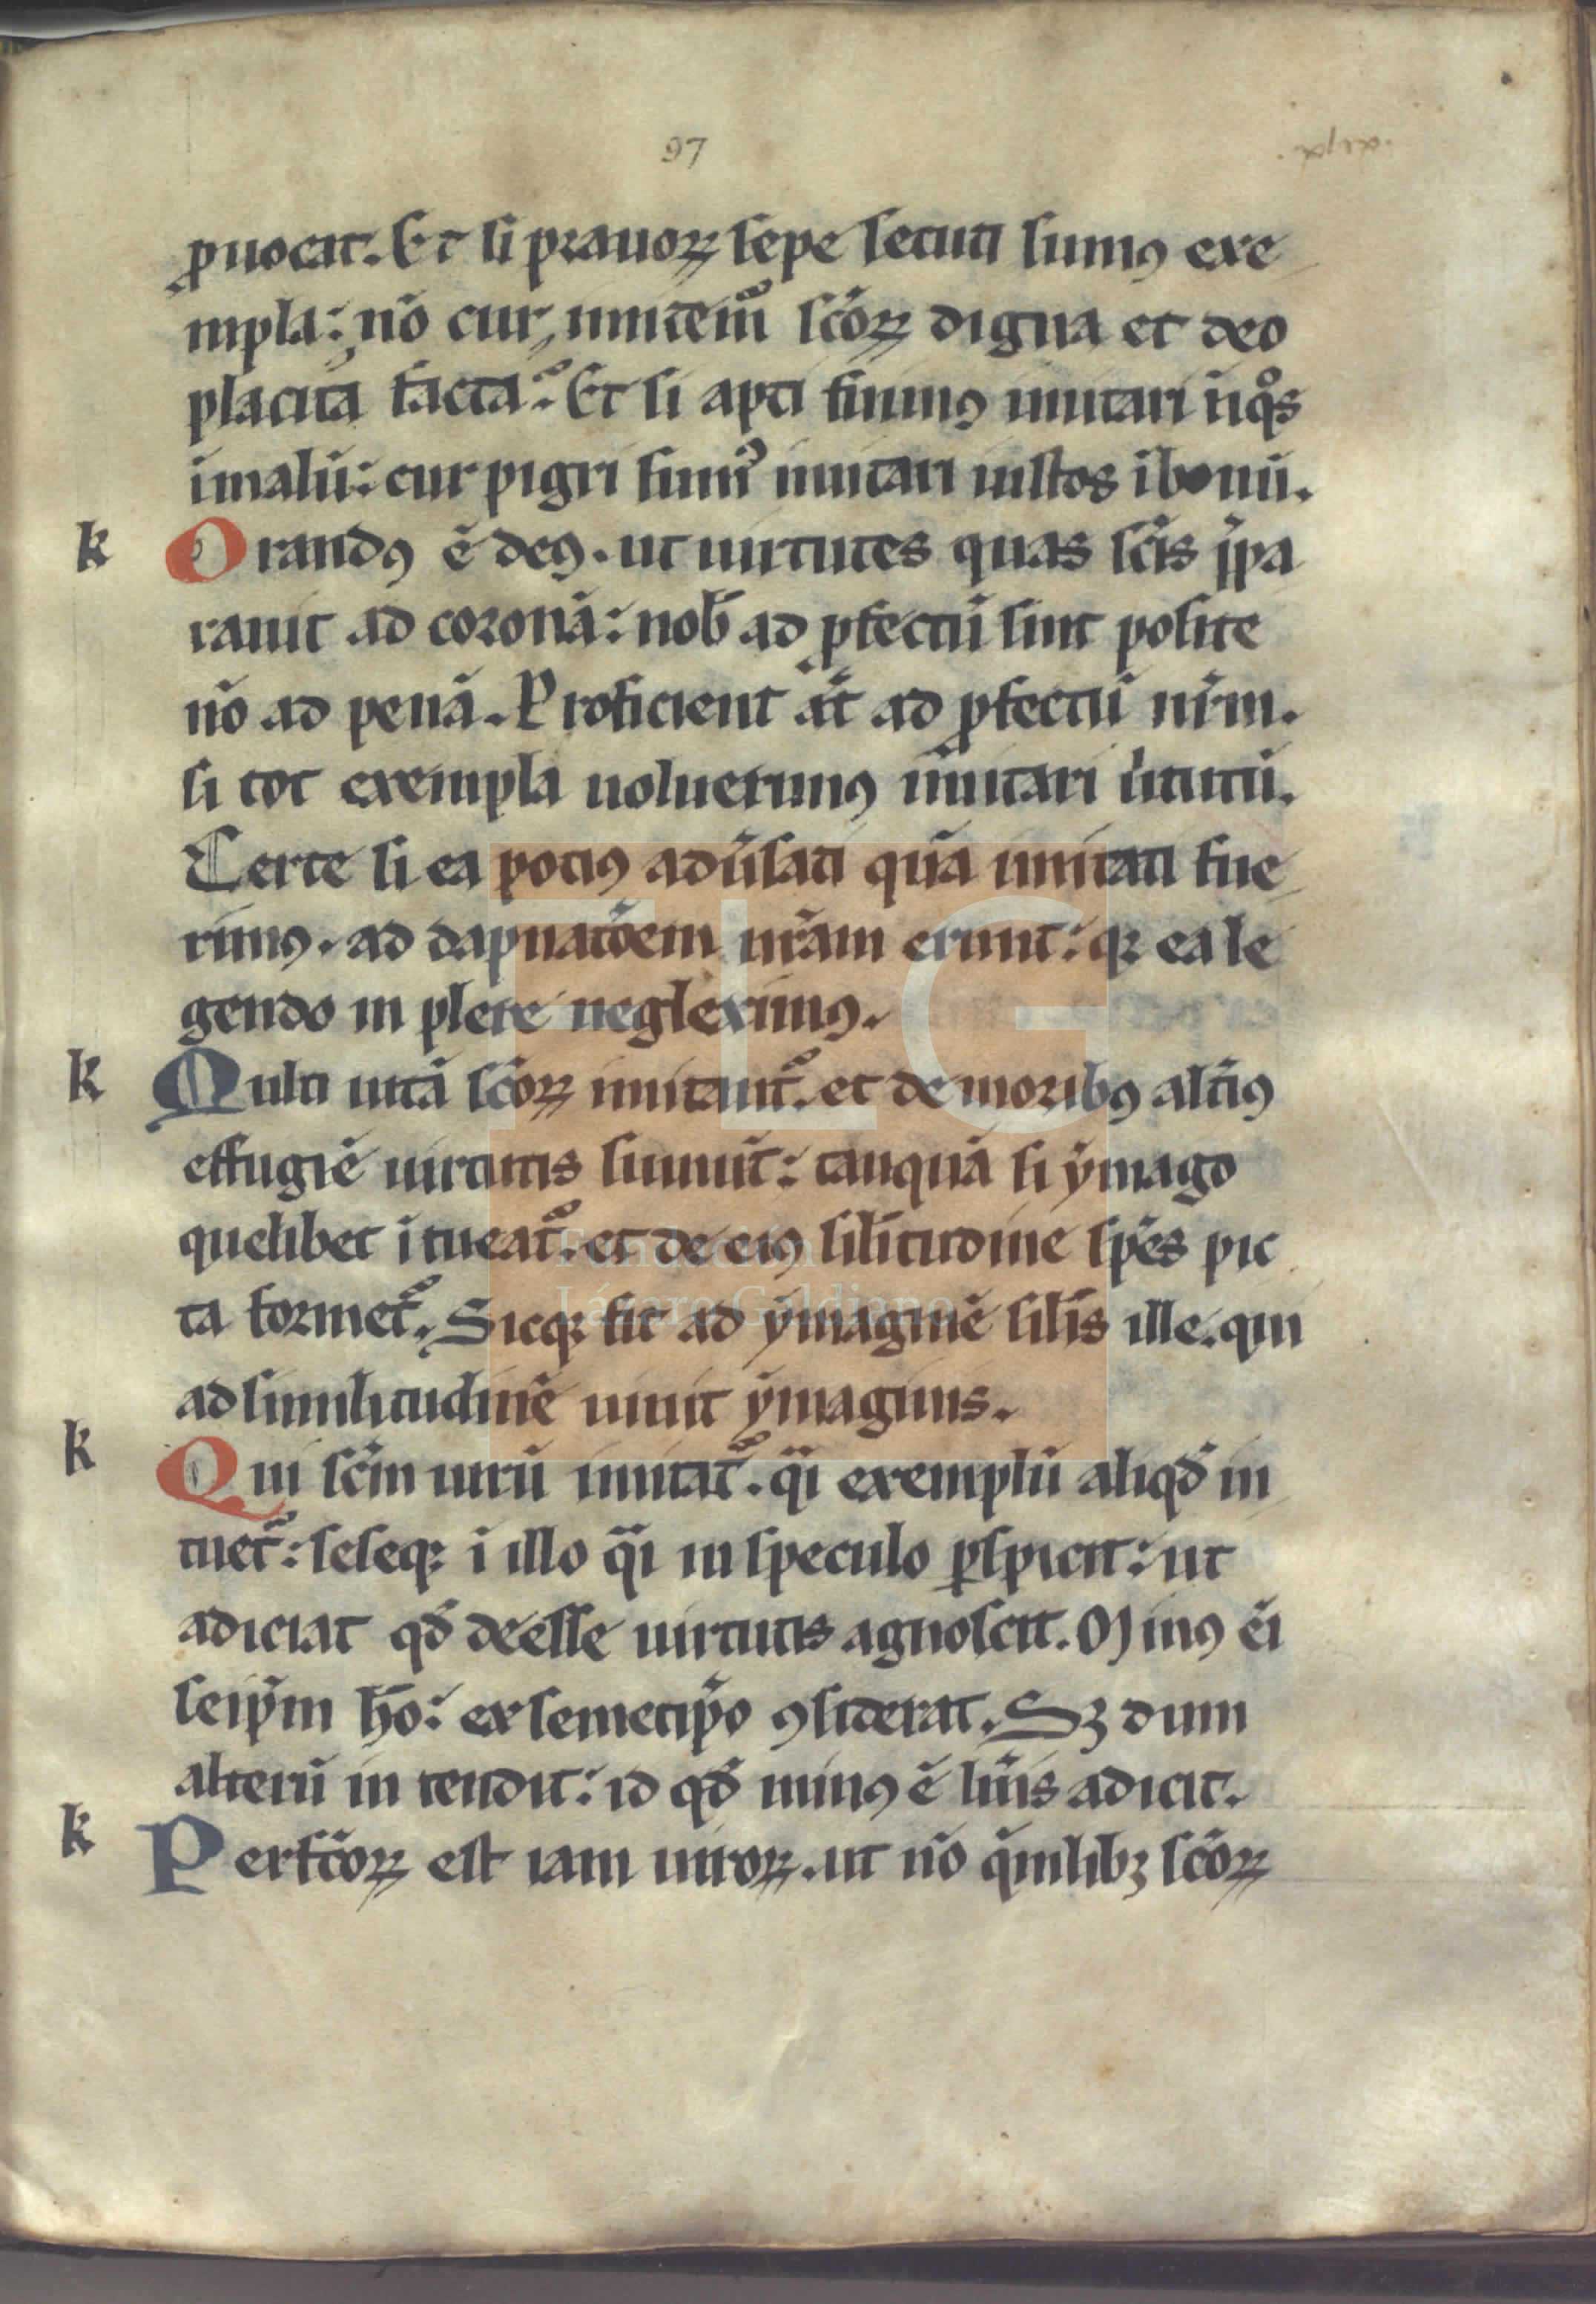 97
ꝓuocat. Et si prauoꝝ sepe secuti sumꝰ exe
mpla: nō cur imitemͬ scōꝝ digna et deo
placita facta? Et si apti fuimꝰ imitari iniq̊s
i malū: cur pigri sumꝰ imitari iustos i bonū.
k Orandꝰ ē deꝰ. ut uirtutes quas sc̄is p̄pa
rauit ad coronā: nob̄ ad ꝓfectū sint posite
nō ad penā. Proficient aū̄t ad ꝓfectū nr̄m.
si tot exempla uoluerimꝰ imitari uirtutū.
Certe si ea potiꝰ adūsati quā imitati fue
rimꝰ. ad dapnatōem nr̄am erunt: qꝫ ea le
gendo in plere negleximꝰ.
k Multi uitā scōꝝ imitant̄. et de moribꝰ alt̄iꝰ
effugiē uirtutis sumūt: tanquā si ymago
quelibet i tueat̄. et de eiꝰ silitudine spēs pic
ta formet̄. Sicqꝫ fit ad ymaginē silis ille. qui
ad similitudinē uiuit ymaginis.
k Qui sc̄m uirū imitat̄. q̄i exemplū aliqd̄ in
tuet̄: seseqꝫ i illo q̄i in speculo ꝑspicit: ut
adiciat qd̄ deesse uirtutis agnoscit. Minꝰ ei
seip̄m hō: ex semetip̄o ꝯsiderat. Sꝫ dum
alterū in tendit: id qd̄ minꝰ ē lu̅i̅s adicit.
k Perfc̄oꝝ est iam uiroꝝ. ut nō q̄mlibꝫ scōꝝ
FLG
Fundación
Lázaro Galdiano